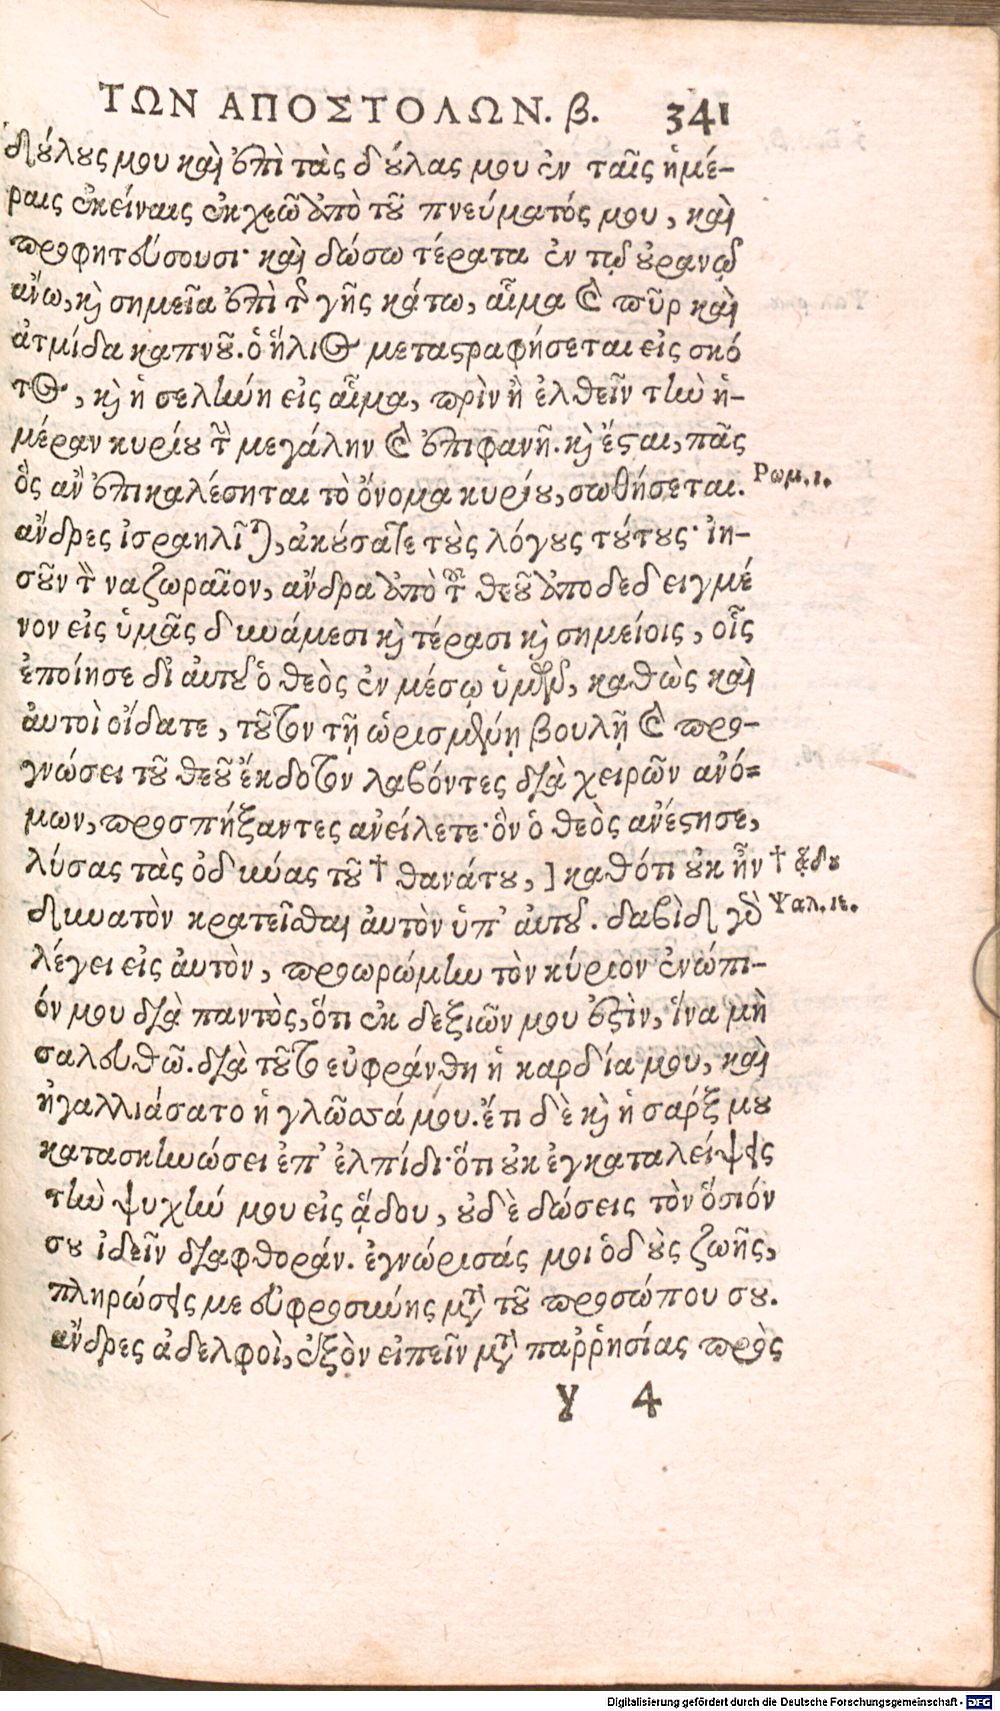 ΤΩΝ ΑΠΟΣΤΟΛΩΝ. β. 341
δούλους μου καὶ ἐπὶ τὰς δούλας μου ἐν ταῖς ἡμέ-
ραις ἐκείναις ἐκχεῶ ἀπὸ τοῦ πνεύματός μου, καὶ
προφητεύσουσι· καὶ δώσω τέρατα ἐν τῷ οὐρανῷ
ἄνω, κὶ σημεῖα ἐπὶ τῆς γῆς κάτω, αἷμα καὶ πῦρ καὶ
ἀτμίδα καπνοῦ. ὁ ἥλιος μεταστραφήσεται εἰς σκό
τος, καὶ ἡ σελήνη εἰς αἷμα, πρὶν ἢ ἐλθεῖν τὴν ἡ-
μέραν κυρίου τὴν μεγάλην καὶ ἐπιφανῆ. καὶ ἔσται, πᾶς
ὃς ἂν ἐπικαλέσηται τὸ ὄνομα κυρίου, σωθήσεται. Ρωμ. ι.
ἄνδρες ἰσραηλῖται, ἀκούσατε τοὺς λόγους τούτους· ἰη-
σοῦν τὸν ναζωραῖον, ἄνδρα ἀπὸ τοῦ θεοῦ ἀποδεδειγμέ
νον εἰς ὑμᾶς δυνάμεσι καὶ τέρασι καὶ σημείοις, οἷς
ἐποίησε δι αὐτοῦ ὁ θεὸς ἐν μέσῳ ὑμῶν, καθὼς καὶ
αὐτοὶ οἴδατε, τοῦτον τῇ ὡρισμένῃ βουλῇ καὶ προ-
γνώσει τοῦ θεοῦ ἔκδοτον λαβόντες διὰ χειρῶν ἀνό-
μων, προσπήξαντες ἀνείλετε· ὃν ὁ θεὸς ἀνέστησε,
λύσας τὰς ὀδύνας τοῦ † θανάτου, ] καθότι οὐκ ἦν † ᾅδου
δυνατὸν κρατεῖσθαι αὐτὸν ὑπ' αὐτοῦ. δαβὶδ γὰρ Ψαλ. ιε.
λέγει εἰς αὐτὸν, προωρώμην τὸν κύριον ἐνώπι-
όν μου διὰ παντὸς, ὅτι ἐκ δεξιῶν μου ἐστὶν, ἵνα μὴ
σαλευθῶ. διὰ τοῦτο εὐφράνθη ἡ καρδία μου, καὶ
ἠγαλλιάσατο ἡ γλῶσσά μου. ἔτι δὲ καὶ ἡ σάρξ μου
κατασκηνώσει ἐπ' ἐλπίδι· ὅτι οὐκ ἐγκαταλείψεις
τὴν ψυχήν μου εἰς ᾅδου, οὐδὲ δώσεις τὸν ὅσιόν
σου ἰδεῖν διαφθοράν. ἐγνώρισάς μοι ὁδοὺς ζωῆς,
πληρώσεις με εὐφροσύνης μετὰ τοῦ προσώπου σου.
ἄνδρες ἀδελφοὶ, ἐξὸν εἰπεῖν μετὰ παῤῥησίας πρὸς
y 4
Digitalisierung gefördert durch die Deutsche Forschungsgemeinschaft - DFG